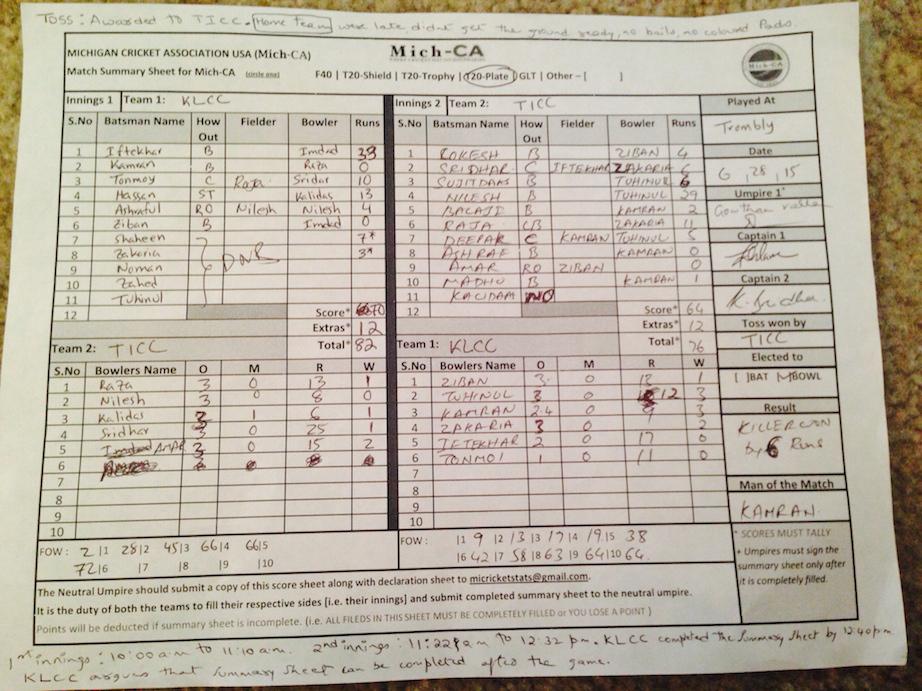 TOSS: Awarded to TICC. Home team were late, didnt get the ground ready, no bails, no coloured Pads.
MICHIGAN CRICKET ASSOCIATION USA (Mich-CA)
Mich-CA
Match Summary Sheet for Mich-CA (circle one) F40 | T20-Shield | T20-Trophy | T20-Plate | GLT | Other – [ ]
Innings 1 Team 1: KLCC
S.No Batsman Name How Out Fielder Bowler Runs
1 Iftekhar B Imdad 33
2 Kamran B Raza 0
3 Tonmoy C Raja Sridar 10
4 Hassan ST Kalidas 13
5 Ashraful RO Nilesh Nilesh 4
6 Ziban B Imdad 0
7 Shaheen 7*
8 Zakeria DNB 3*
9 Noman
10 Zahed
11 Tuhinul
12 Score* 70
Extras* 12
Total* 82
Innings 2 Team 2: TICC
S.No Batsman Name How Out Fielder Bowler Runs
1 ROKESH B ZIBAN 4
2 SRIDHAR C IFTEKHAR ZAKARIA 6
3 SUJITDAMS B TUHINUL 6
4 NILESH B TUHINUL 29
5 BALAJI B KAMRAN 2
6 RAJA CB ZAKARIA 11
7 DEEPAK C KAMRAN TUHINUL 5
8 ASHRAF B KAMRAN 0
9 AMAR RO ZIBAN 0
10 MADHU B KAMRAN 1
11 KALIDAM NO
12 Score* 64
Extras* 12
Total* 76
Team 2: TICC
S.No Bowlers Name O M R W
1 Raza 3 0 13 1
2 Nilesh 3 0 8 0
3 Kalidas 3 1 6 1
4 Sridhar 3 0 25 1
5 AMAR 3 0 15 2
6
7
8
9
10
FOW: 2|1 28|2 45|3 66|4 66|5
72|6 |7 |8 |9 |10
Team 1: KLCC
S.No Bowlers Name O M R W
1 ZIBAN 3 0 13 1
2 TUHINUL 3 0 12 3
3 KAMRAN 2.4 0 9 3
4 ZAKARIA 3 0 2
5 IFTEKHAR 2 0 17 0
6 TONMOI 1 0 11 0
7
8
9
10
FOW: |1 9 |2 13 |3 17 |4 19 |5 38
|6 42 |7 58 |8 63 |9 64 |10 64
Played At
Trombly
Date
6 , 28 , 15
Umpire 1*
Captain 1
Captain 2
K. Sridhar
Toss won by
TICC
Elected to
[ ]BAT [ ]BOWL
Result
KILLER WON
by 6 Runs
Man of the Match
KAMRAN
* SCORES MUST TALLY
+ Umpires must sign the summary sheet only after it is completely filled.
The Neutral Umpire should submit a copy of this score sheet along with declaration sheet to micricketstats@gmail.com.
It is the duty of both the teams to fill their respective sides [i.e. their innings] and submit completed summary sheet to the neutral umpire.
Points will be deducted if summary sheet is incomplete. (i.e. ALL FILEDS IN THIS SHEET MUST BE COMPLETELY FILLED or YOU LOSE A POINT )
1st innings: 10:00 a.m to 11:10 a.m. 2nd innings: 11:22 a.m to 12:32 pm. KLCC completed the summary sheet by 12:40pm
KLCC argues that summary sheet can be completed after the game.